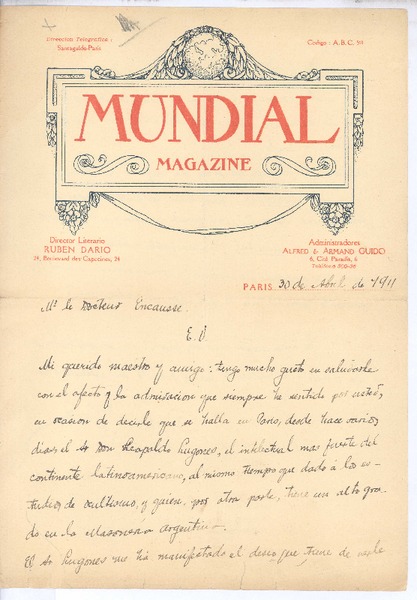 Dirección Telegráfica :
Santagalde-París
Código : A.B.C. 5ª
MUNDIAL
MAGAZINE
Director Literario
RUBEN DARIO
24, Boulevard des Capucines, 24
Administradores
ALFRED & ARMAND GUIDO
6, Cité Paradis, 6
PARIS 30 de Abril de 1911
Mr le Docteur Encausse.
Mi querido maestro y amigo: tengo mucho gusto en saludarle
con el afecto y la admiracion que siempre he sentido por usted,
en ocasion de decirle que se halla en Paris, desde hace varios
dias, el Sr Don Leopoldo Lugones, el intelectual mas fuerte del
continente latinoamericano, al mismo tiempo que dado á los es-
tudios de ocultismo, y quien, por otra parte, tiene un alto gra-
do en la Masoneria Argentina.
El Sr Lugones me ha manifestado el deseo que tiene de verle